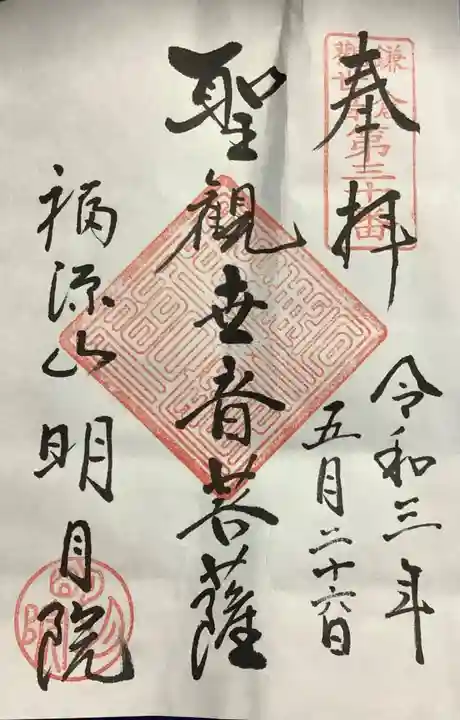 奉拝
鎌倉
観世音第三十番
令和三年
五月二十六日
聖観世音菩薩
福源山
明月院